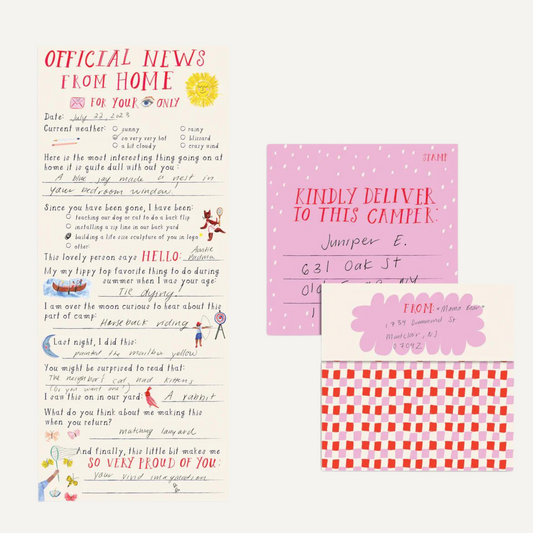 OFFICIAL NEWS
FROM HOME
FOR YOUR ONLY
Date: July 22, 2023
Current weather:
sunny
rainy
so very very hot
blizzard
a bit cloudy
crazy wind
Here is the most interesting thing going on at
home it is quite dull with out you:
A blue jay made a nest in
your bedroom window!
Since you have been gone, I have been:
teaching our dog or cat to do a back flip
installing a zip line in our back yard
building a life size sculpture of you in lego
other:
This lovely person says HELLO:
My tippy top favorite thing to do during
summer when I was your age:
Tie dying!
I am over the moon curious to hear about this
part of camp:
Horseback riding
Last night, I did this:
painted the mailbox yellow
You might be surprised to read that:
The neighbor's cat had kittens
(Do you want one?)
I saw this on in our yard: A rabbit
What do you think about me making this
when you return?
matching lanyard
And finally, this little bit makes me
SO VERY PROUD OF YOU:
your kind imagination
STAMP
KINDLY DELIVER
TO THIS CAMPER:
Juniper E.
631 Oak St
FROM: Mama Bear
Montclair, NJ
07042